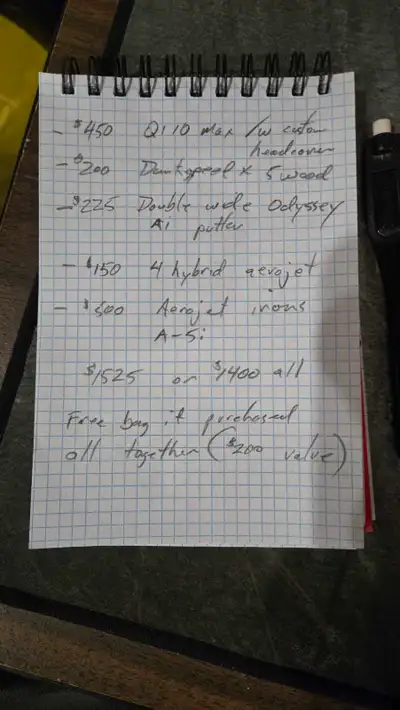 - $450 Qi10 max /w custom
headcover
- $200 Darkspeed x 5 wood
- $225 Double wide Odyssey
Ai putter
- $150 4 hybrid aerojet
- $500 Aerojet irons
A-5i
$1525 or $1400 all
Free bag if purchased
all together ($200 value)